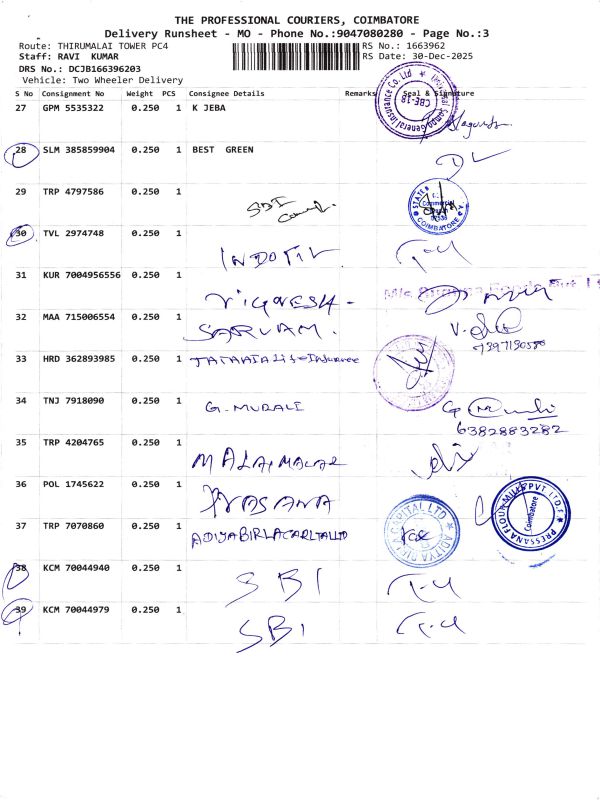 THE PROFESSIONAL COURIERS, COIMBATORE
Delivery Runsheet - MO - Phone No.:9047080280 - Page No.:3
Route: THIRUMALAI TOWER PC4 RS No.: 1663962
Staff: RAVI KUMAR RS Date: 30-Dec-2025
DRS No.: DCJB166396203
Vehicle: Two Wheeler Delivery
S No Consignment No Weight PCS Consignee Details Remarks Seal & Signature
27 GPM 5535322 0.250 1 K JEBA
General Insurance Co. Ltd. CBE-18
28 SLM 385859904 0.250 1 BEST GREEN
29 TRP 4797586 0.250 1
STATE B Commercial COIMBATORE
30 TVL 2974748 0.250 1
31 KUR 7004956556 0.250 1 VIGNESH -
32 MAA 715006554 0.250 1 SARVAM.
33 HRD 362893985 0.250 1 TATA AIA Life Insurance
34 TNJ 7918090 0.250 1 G. MURALI
6382883282
35 TRP 4204765 0.250 1 MALAIMALAR
36 POL 1745622 0.250 1
PRESSANA FLOUR MILLS PVT. LTD., Coimbatore
37 TRP 7070860 0.250 1 ADIYA BIRLA
CAPITAL LTD ADITYA
38 KCM 70044940 0.250 1 SBI
39 KCM 70044979 0.250 1 SBI